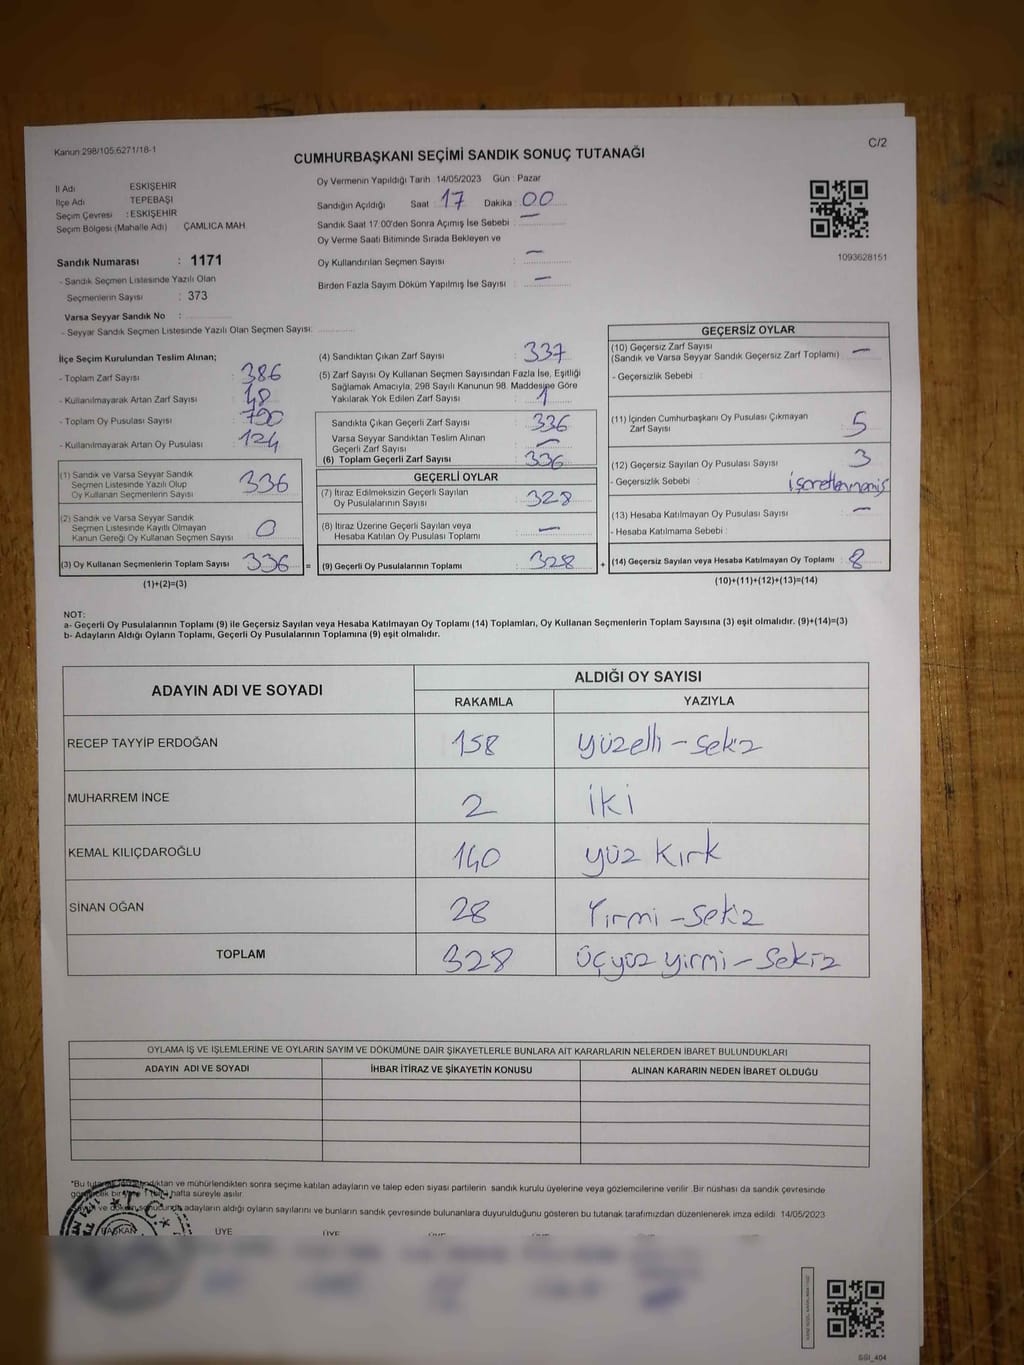 Kanun 298/105,6271/18-1
C/2
CUMHURBAŞKANI SEÇİMİ SANDIK SONUÇ TUTANAĞI
İl Adı ESKİŞEHİR
İlçe Adı TEPEBAŞI
Seçim Çevresi : ESKİŞEHİR
Seçim Bölgesi (Mahalle Adı) ÇAMLICA MAH
Sandık Numarası : 1171
- Sandık Seçmen Listesinde Yazılı Olan
Seçmenlerin Sayısı : 373
Varsa Seyyar Sandık No :
- Seyyar Sandık Seçmen Listesinde Yazılı Olan Seçmen Sayısı:
Oy Vermenin Yapıldığı Tarih : 14/05/2023 Gün : Pazar
Sandığın Açıldığı Saat : 17 Dakika : 00
Sandık Saat 17.00'den Sonra Açımış İse Sebebi : —
Oy Verme Saati Bitiminde Sırada Bekleyen ve
Oy Kullandırılan Seçmen Sayısı : —
Birden Fazla Sayım Döküm Yapılmış İse Sayısı : —
1093628151
İlçe Seçim Kurulundan Teslim Alınan;
- Toplam Zarf Sayısı : 386
- Kullanılmayarak Artan Zarf Sayısı : 48
- Toplam Oy Pusulası Sayısı :
- Kullanılmayarak Artan Oy Pusulası : 124
(1) Sandık ve Varsa Seyyar Sandık
Seçmen Listesinde Yazılı Olup
Oy Kullanan Seçmenlerin Sayısı 336
(2) Sandık ve Varsa Seyyar Sandık
Seçmen Listesinde Kayıtlı Olmayan
Kanun Gereği Oy Kullanan Seçmen Sayısı 0
(3) Oy Kullanan Seçmenlerin Toplam Sayısı 336 =
(1)+(2)=(3)
(4) Sandıktan Çıkan Zarf Sayısı : 337
(5) Zarf Sayısı Oy Kullanan Seçmen Sayısından Fazla İse, Eşitliği
Sağlamak Amacıyla, 298 Sayılı Kanunun 98. Maddesine Göre
Yakılarak Yok Edilen Zarf Sayısı : 1
Sandıkta Çıkan Geçerli Zarf Sayısı : 336
Varsa Seyyar Sandıktan Teslim Alınan
Geçerli Zarf Sayısı : —
(6) Toplam Geçerli Zarf Sayısı : 336
GEÇERLİ OYLAR
(7) İtiraz Edilmeksizin Geçerli Sayılan
Oy Pusulalarının Sayısı : 328
(8) İtiraz Üzerine Geçerli Sayılan veya
Hesaba Katılan Oy Pusulası Toplamı : —
(9) Geçerli Oy Pusulalarının Toplamı : 328 +
GEÇERSİZ OYLAR
(10) Geçersiz Zarf Sayısı
(Sandık ve Varsa Seyyar Sandık Geçersiz Zarf Toplamı) : —
- Geçersizlik Sebebi :
(11) İçinden Cumhurbaşkanı Oy Pusulası Çıkmayan
Zarf Sayısı : 5
(12) Geçersiz Sayılan Oy Pusulası Sayısı : 3
- Geçersizlik Sebebi : işaretlenmemiş
(13) Hesaba Katılmayan Oy Pusulası Sayısı : —
- Hesaba Katılmama Sebebi :
(14) Geçersiz Sayılan veya Hesaba Katılmayan Oy Toplamı : 8
(10)+(11)+(12)+(13)=(14)
NOT:
a- Geçerli Oy Pusulalarının Toplamı (9) ile Geçersiz Sayılan veya Hesaba Katılmayan Oy Toplamı (14) Toplamları, Oy Kullanan Seçmenlerin Toplam Sayısına (3) eşit olmalıdır. (9)+(14)=(3)
b- Adayların Aldığı Oyların Toplamı, Geçerli Oy Pusulalarının Toplamına (9) eşit olmalıdır.
ADAYIN ADI VE SOYADI ALDIĞI OY SAYISI
RAKAMLA YAZIYLA
RECEP TAYYİP ERDOĞAN 158 yüzelli-sekiz
MUHARREM İNCE 2 iki
KEMAL KILIÇDAROĞLU 140 yüz kırk
SİNAN OĞAN 28 Yirmi-sekiz
TOPLAM 328 üçyüz yirmi-sekiz
OYLAMA İŞ VE İŞLEMLERİNE VE OYLARIN SAYIM VE DÖKÜMÜNE DAİR ŞİKAYETLERLE BUNLARA AİT KARARLARIN NELERDEN İBARET BULUNDUKLARI
ADAYIN ADI VE SOYADI İHBAR İTİRAZ VE ŞİKAYETİN KONUSU ALINAN KARARIN NEDEN İBARET OLDUĞU
*Bu ve mühürlendikten sonra seçime katılan adayların ve talep eden siyasi partilerin sandık kurulu üyelerine veya gözlemcilerine verilir .Bir nüshası da sandık çevresinde
bir hafta süreyle asılır.
adayların aldığı oyların sayılarını ve bunların sandık çevresinde bulunanlara duyurulduğunu gösteren bu tutanak tarafımızdan düzenlenerek imza edildi. 14/05/2023
T.C.
BAŞKAN ÜYE ÜYE ÜYE ÜYE
SSI_404